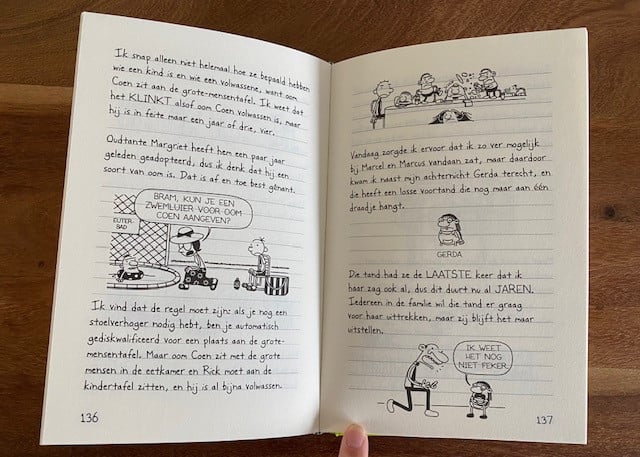 Ik snap alleen niet helemaal hoe ze bepaald hebben
wie een kind is en wie een volwassene, want oom
Coen zit aan de grote-mensentafel. Ik weet dat
het KLINKT alsof oom Coen volwassen is, maar
hij is in feite maar een jaar of drie, vier.
Oudtante Margriet heeft hem een paar jaar
geleden geadopteerd, dus ik denk dat hij een
soort van oom is. Dat is af en toe best gênant.
BRAM, KUN JE EEN
ZWEMLUIER VOOR OOM
COEN AANGEVEN?
EUTER-
BAD
Ik vind dat de regel moet zijn: als je nog een
stoelverhoger nodig hebt, ben je automatisch
gediskwalificeerd voor een plaats aan de grote-
mensentafel. Maar oom Coen zit met de grote
mensen in de eetkamer en Rick moet aan de
kindertafel zitten, en hij is al bijna volwassen.
136
Vandaag zorgde ik ervoor dat ik zo ver mogelijk
bij Marcel en Marcus vandaan zat, maar daardoor
kwam ik naast mijn achternicht Gerda terecht, en
die heeft een losse voortand die nog maar aan één
draadje hangt.
GERDA
Die tand had ze de LAATSTE keer dat ik
haar zag ook al, dus dit duurt nu al JAREN.
Iedereen in de familie wil die tand er graag
voor haar uittrekken, maar zij blijft het maar
uitstellen.
IK WEET
HET NOG
NIET FEKER.
137